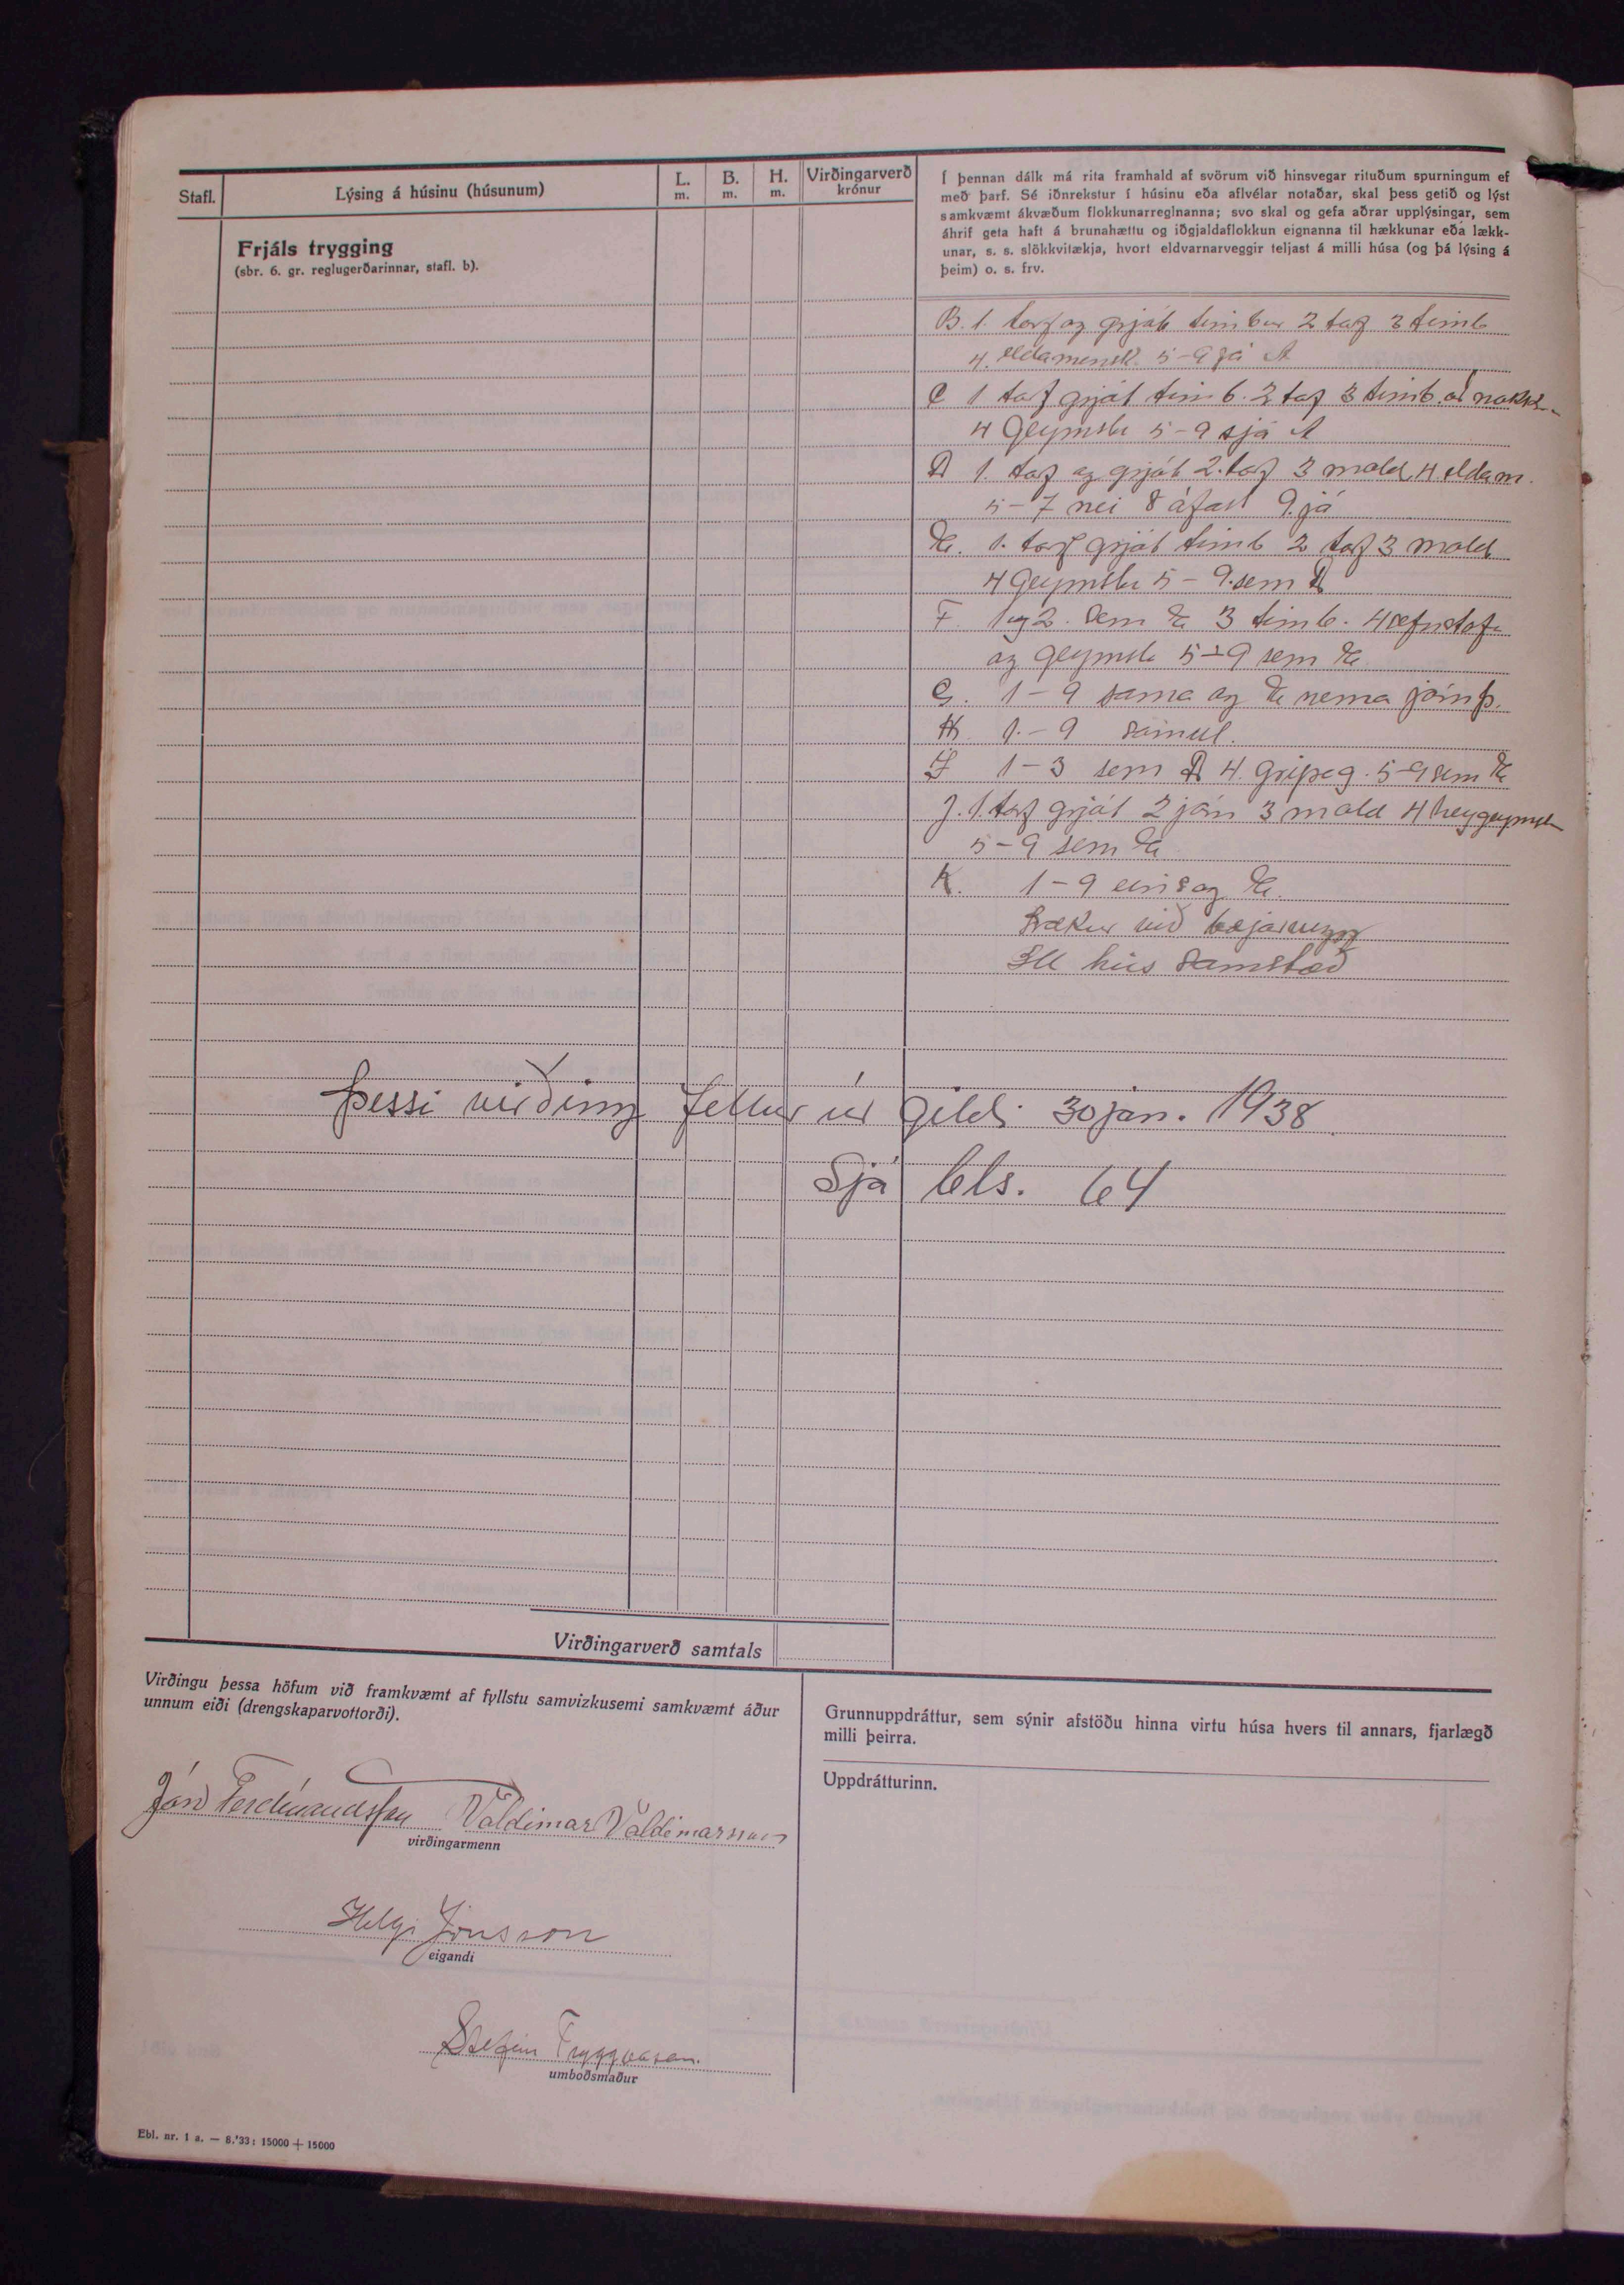 Stafl. Lýsing á húsinu (húsunum) L. m. B. m. H. m. Virðingarverð krónur
Frjáls trygging
(sbr. 6. gr. reglugerðarinnar, stafl. b).
Í þennan dálk má rita framhald af svörum við hinsvegar rituðum spurningum ef
með þarf. Sé iðnrekstur í húsinu eða aflvélar notaðar, skal þess getið og lýst
samkvæmt ákvæðum flokkunarreglnanna; svo skal og gefa aðrar upplýsingar, sem
áhrif geta haft á brunahættu og iðgjaldaflokkun eignanna til hækkunar eða lækk-
unar, s. s. slökkvitækja, hvort eldvarnarveggir teljast á milli húsa (og þá lýsing á
þeim) o. s. frv.
B. 1. torf og grjót timbur 2 torf 3 timb
4. eldamensk. 5-9 já A
C 1 torf grjót timb. 2 torf 3 timb. að nokkr
4 Geymsla 5-9 sjá A
D 1. torf og grjót 2. torf 3 mold 4 eldam.
5-7 nei 8 áfast 9. já
E. 1. torf grjót timb 2 torf 3 mold
4 geymsla 5-9. sem D
F. 1 og 2. sem E 3 timb. 4 svefnstofa
og geymsla 5-9 sem E
G. 1-9 sama og E nema járnþ.
H. 1.-9 sömul.
I 1-3 sem D 4. gripag. 5-9 sem E
J. 1. torf grjót 2 járn 3 mold 4 heygeymsla
5-9 sem E
K. 1-9 eins og E.
Lækur við bæjarvegg
Öll hús samstæð
Þessi virðing fellur úr gildi 30 jan. 1938
Sjá bls. 64
Virðingarverð samtals
Virðingu þessa höfum við framkvæmt af fyllstu samvizkusemi samkvæmt áður
unnum eiði (drengskaparvottorði).
Jón Ferdínandsson Valdimar Valdimarsson
virðingarmenn
Helgi Jónsson
eigandi
Stefán Tryggvason.
umboðsmaður
Grunnuppdráttur, sem sýnir afstöðu hinna virtu húsa hvers til annars, fjarlægð
milli þeirra.
Uppdrátturinn.
Ebl. nr. 1 a. — 8.'33: 15000 + 15000